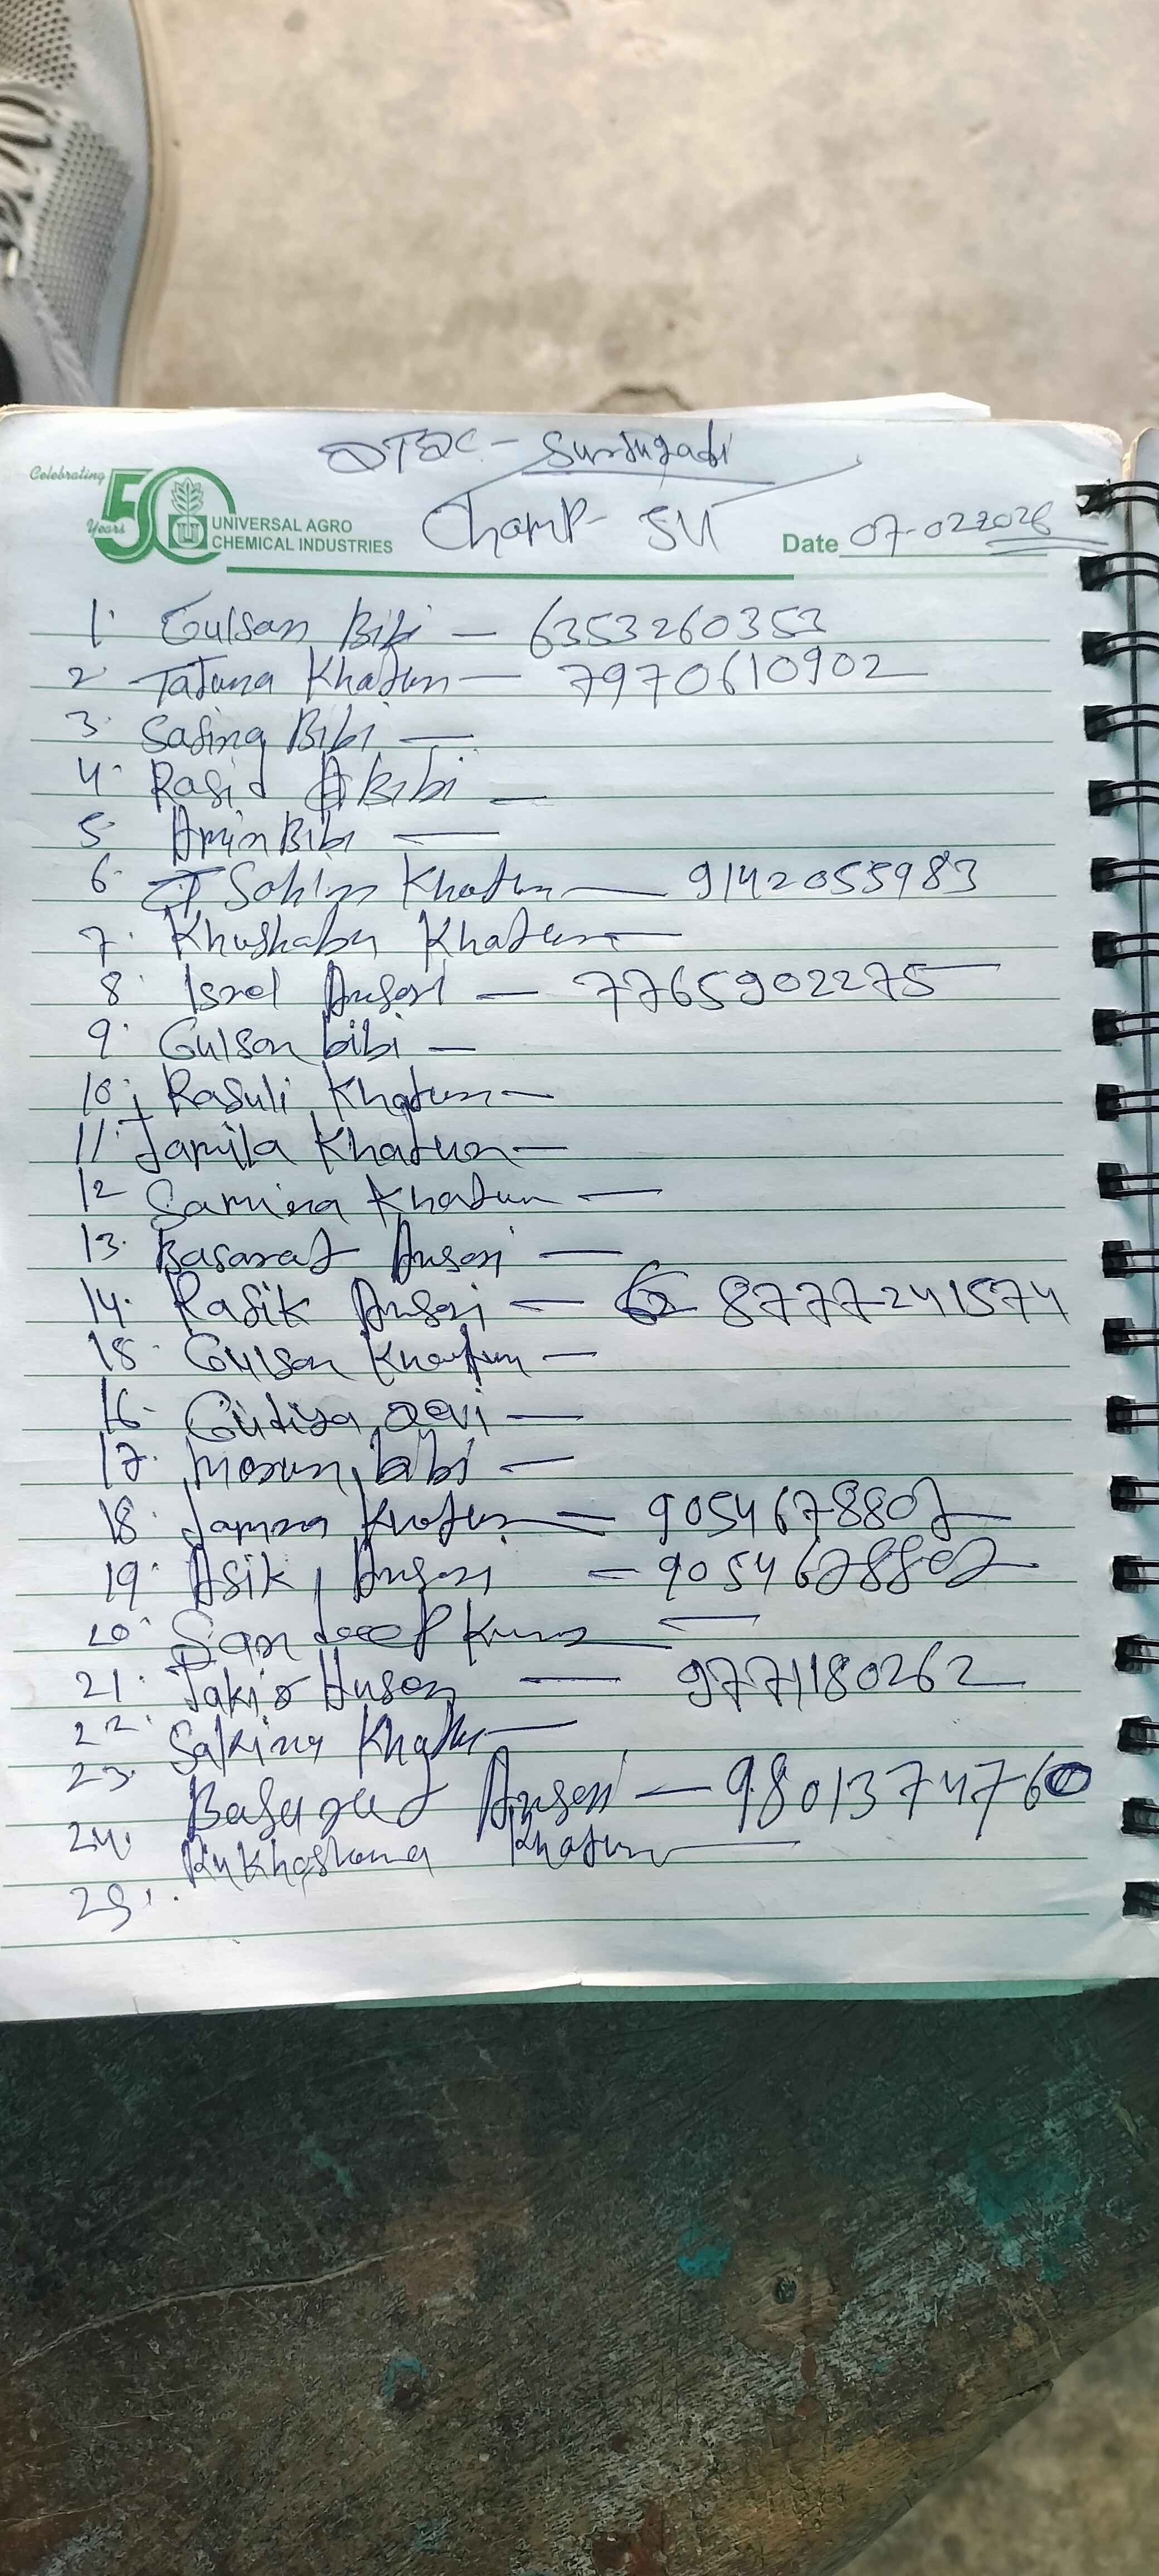 DTDC - Surajgadi
Celebrating 50 Years
UNIVERSAL AGRO
CHEMICAL INDUSTRIES
Champ- SU
Date 07-02-2026
1. Gulsan Bibi - 6353260353
2. Tatuna Khatun - 7970610902
3. Safina Bibi -
4. Rasid Bibi -
5. Amin Bibi -
6. Sohim Khatun - 9142055983
7. Khushabu Khatun -
8. Isrel Ansari - 7765902275
9. Gulson bibi -
10. Rasuli Khatun -
11. Jamila Khatun -
12 Samina Khatun -
13. Basarat Ansari -
14. Rafik Ansari - 8777241574
15. Gulsan Khatun -
16. Gudiya Devi -
17. bibi -
18. Khatun - 9054678807
19. Asik Ansari = 9054678807
20. Sandeep Kumar -
21. Jakir Husen - 9771180262
22. Sakina Khatun -
23. Basarat Ansari - 9801374760
24. Rukhashana Khatun
25.